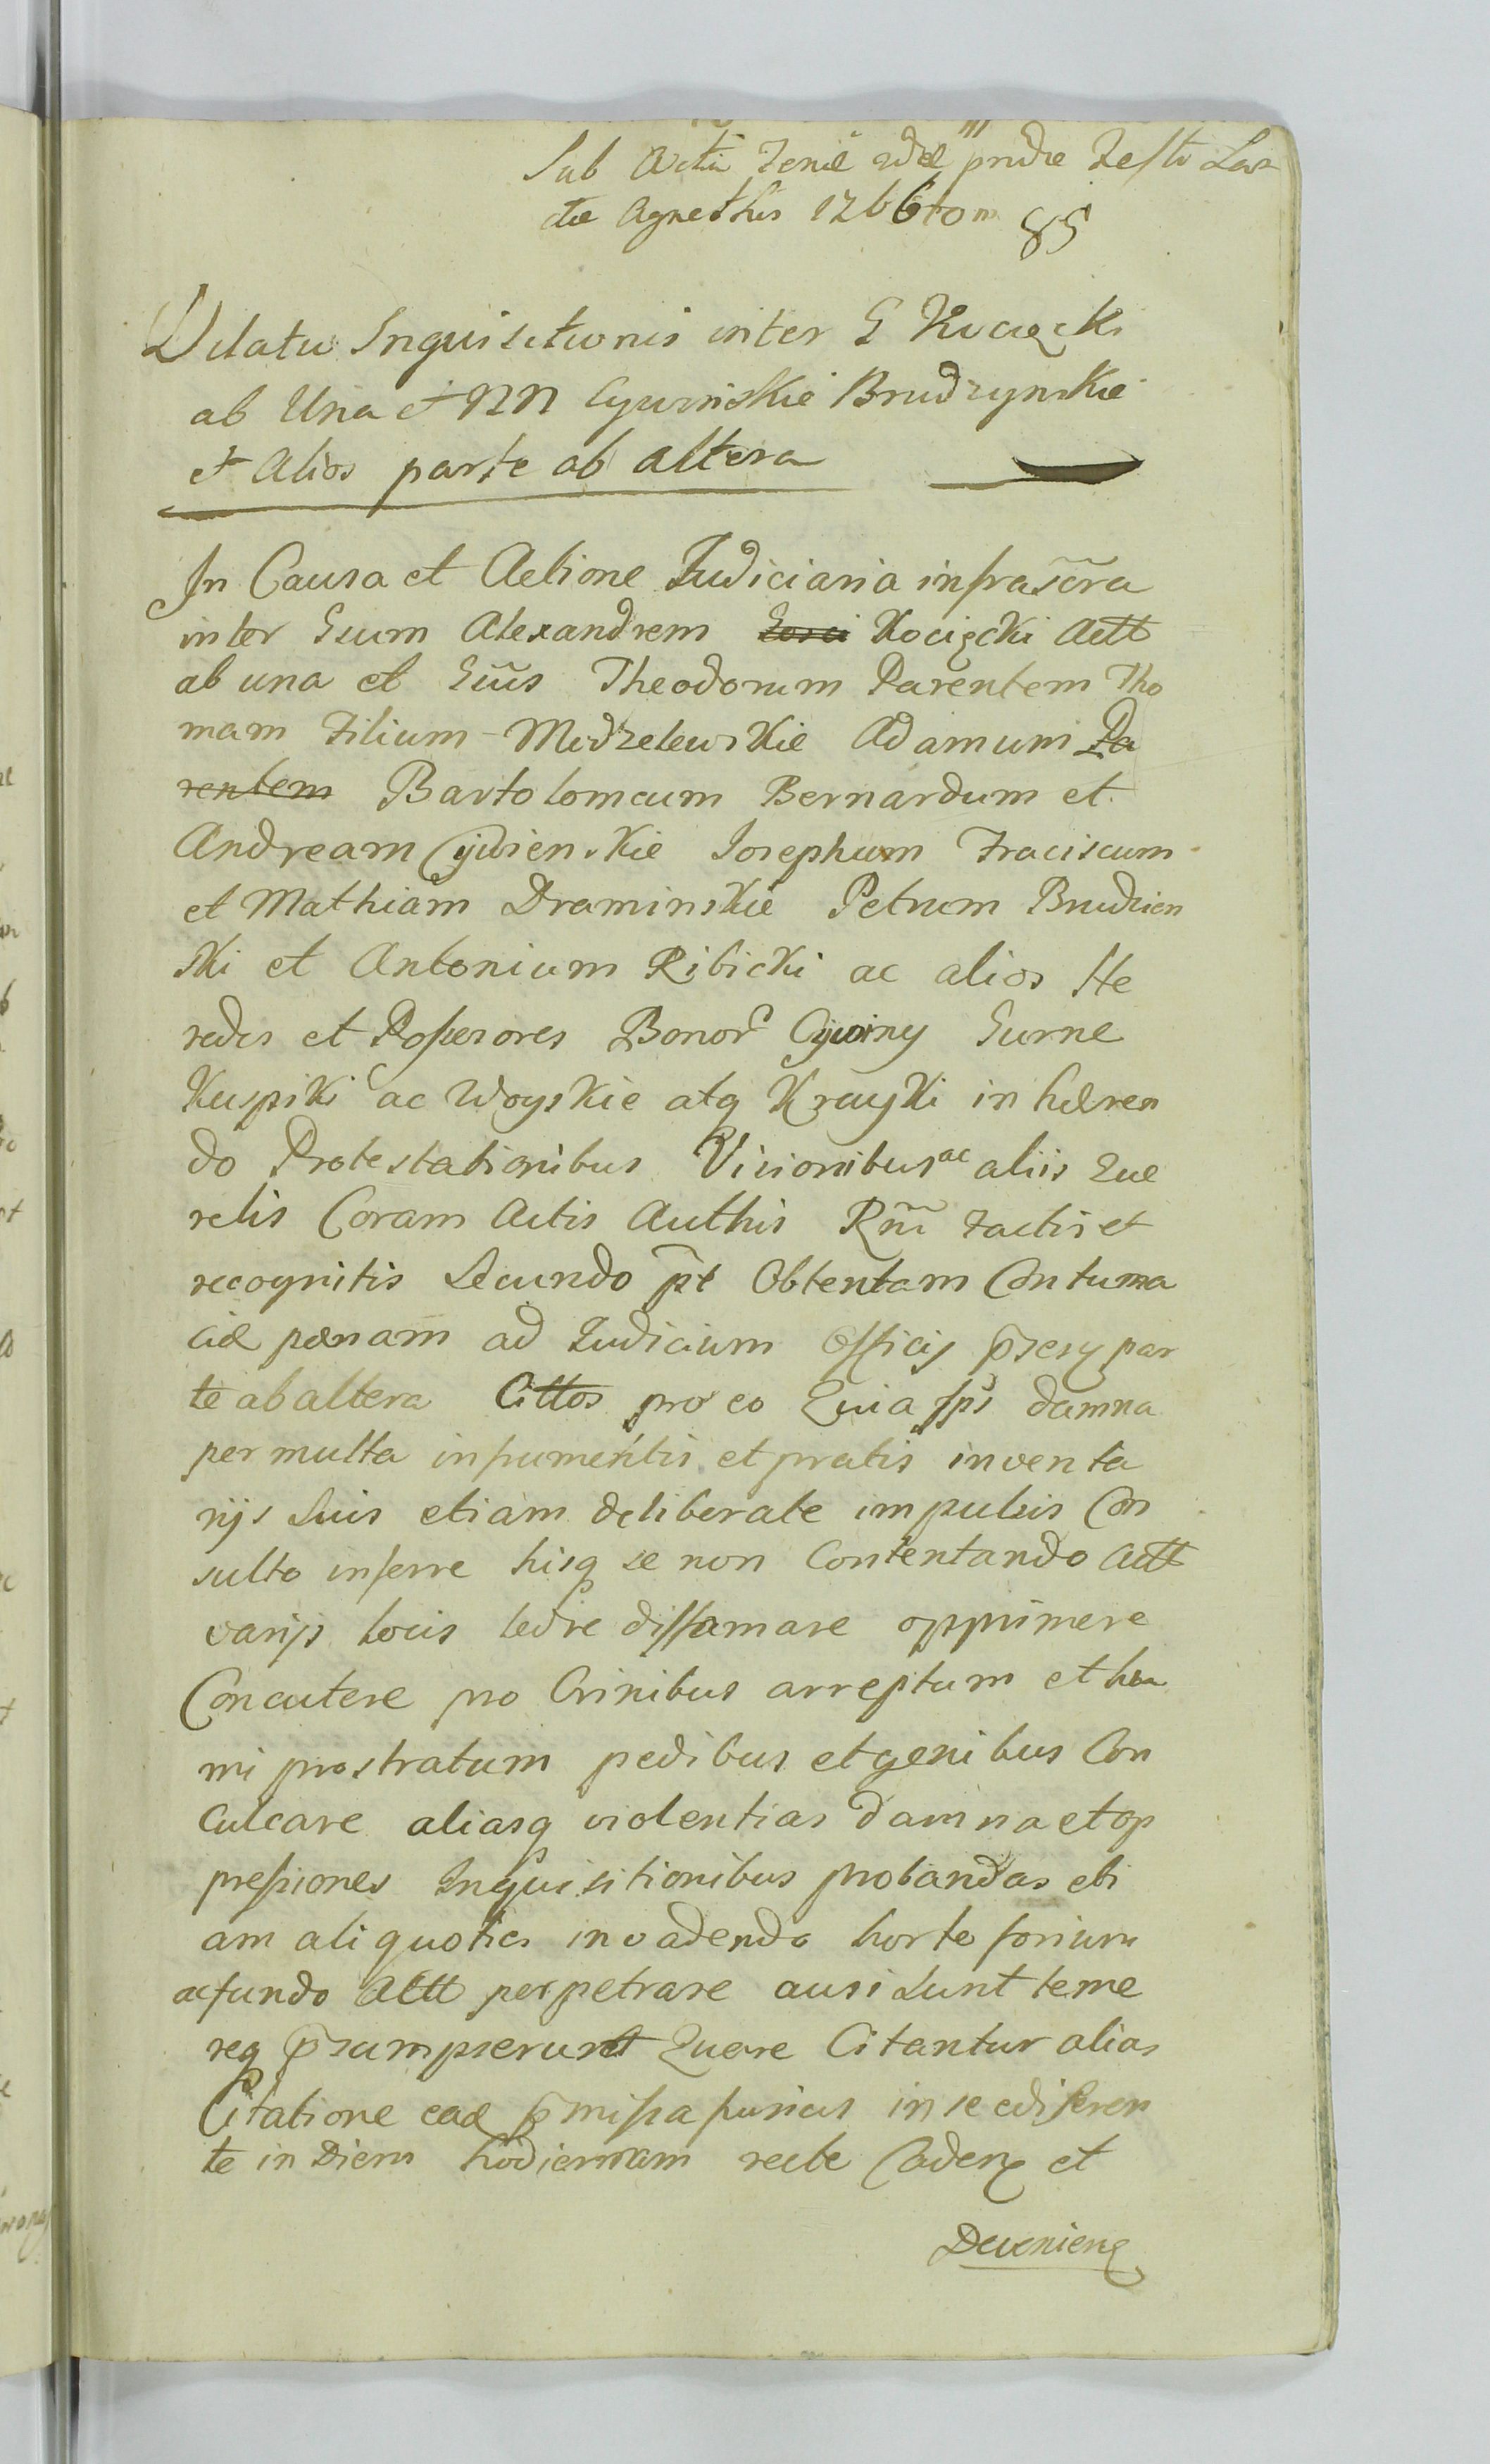 Sub Actu Feriæ 2dæ pridie Festi San
ctæ Agnethis 1766to m 85
Dilatio Inquisitionis inter G Kocięcki
ab Una et NN Cywinskie Brudzynskie
et Alios parte ab altera
In Causa et Actione Judiciaria infrascra
inter Gsum Alexandrem Kocięcki Actt
ab una et Gsus Theodorum Parentem Tho
mam Filium Modzelewskie Adamum Pa
rentem Bartolomeum Bernardum et
Andream Cywienskie Josephum Franciscum
et Mathiam Draminskie Petrum Brudzien
ski et Antonium Ribicki ac alios He
redes et Possesores Bonor Cywiny Gurne
Kuspiki ac Woyskie atq Krayki inhæren
do Protestationibus Visionibus ac aliis Que
relis Coram Actis Authis Rni factis et
recognitis Secundo pt Obtentam Contuma
ciæ pœnam ad Judicium Officij præns par
te ab altera Cittos pro eo Quia ipsi damna
per multa in frumentis et pratis inventa
rijs suis etiam deliberate impulsis Con
sulto inferre hisq se non Contentando Actt
varijs locis lædere diffamare opprimere
Concutere pro Crinibus arreptum et hu
mi prostratum pedibus et genibus Con
culcare aliasq violentias damna et op
pressiones Inquisitionibus probandas eti
am aliquoties invadendo horte forium
ac fundo Actt perpetrare ausi sunt teme
req præsumpserunt Quare Citantur alias
Citatione eadæ præmissa fusius in se edisseren
te in Diem hodiernam recte Caden et
Devenien